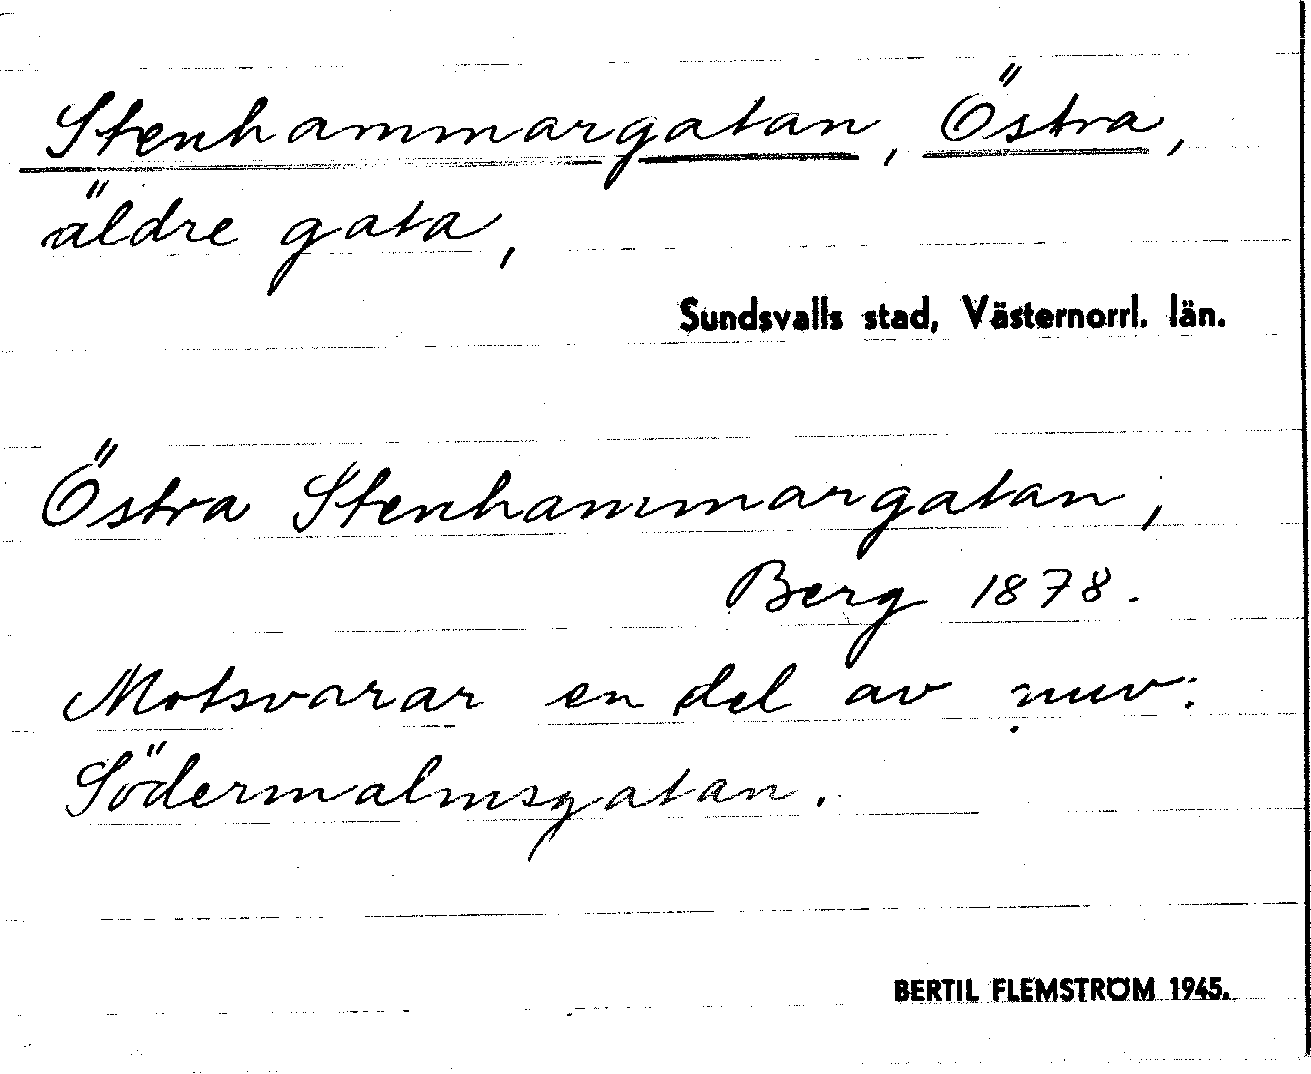 Stenhammargatan, Östra,
äldre gata,
Sundsvalls stad, Västernorrl. län.
Östra Stenhammargatan,
Berg 1878.
Motsvarar en del av nuv.
Södermalmsgatan.
BERTIL FLEMSTRÖM 1945.